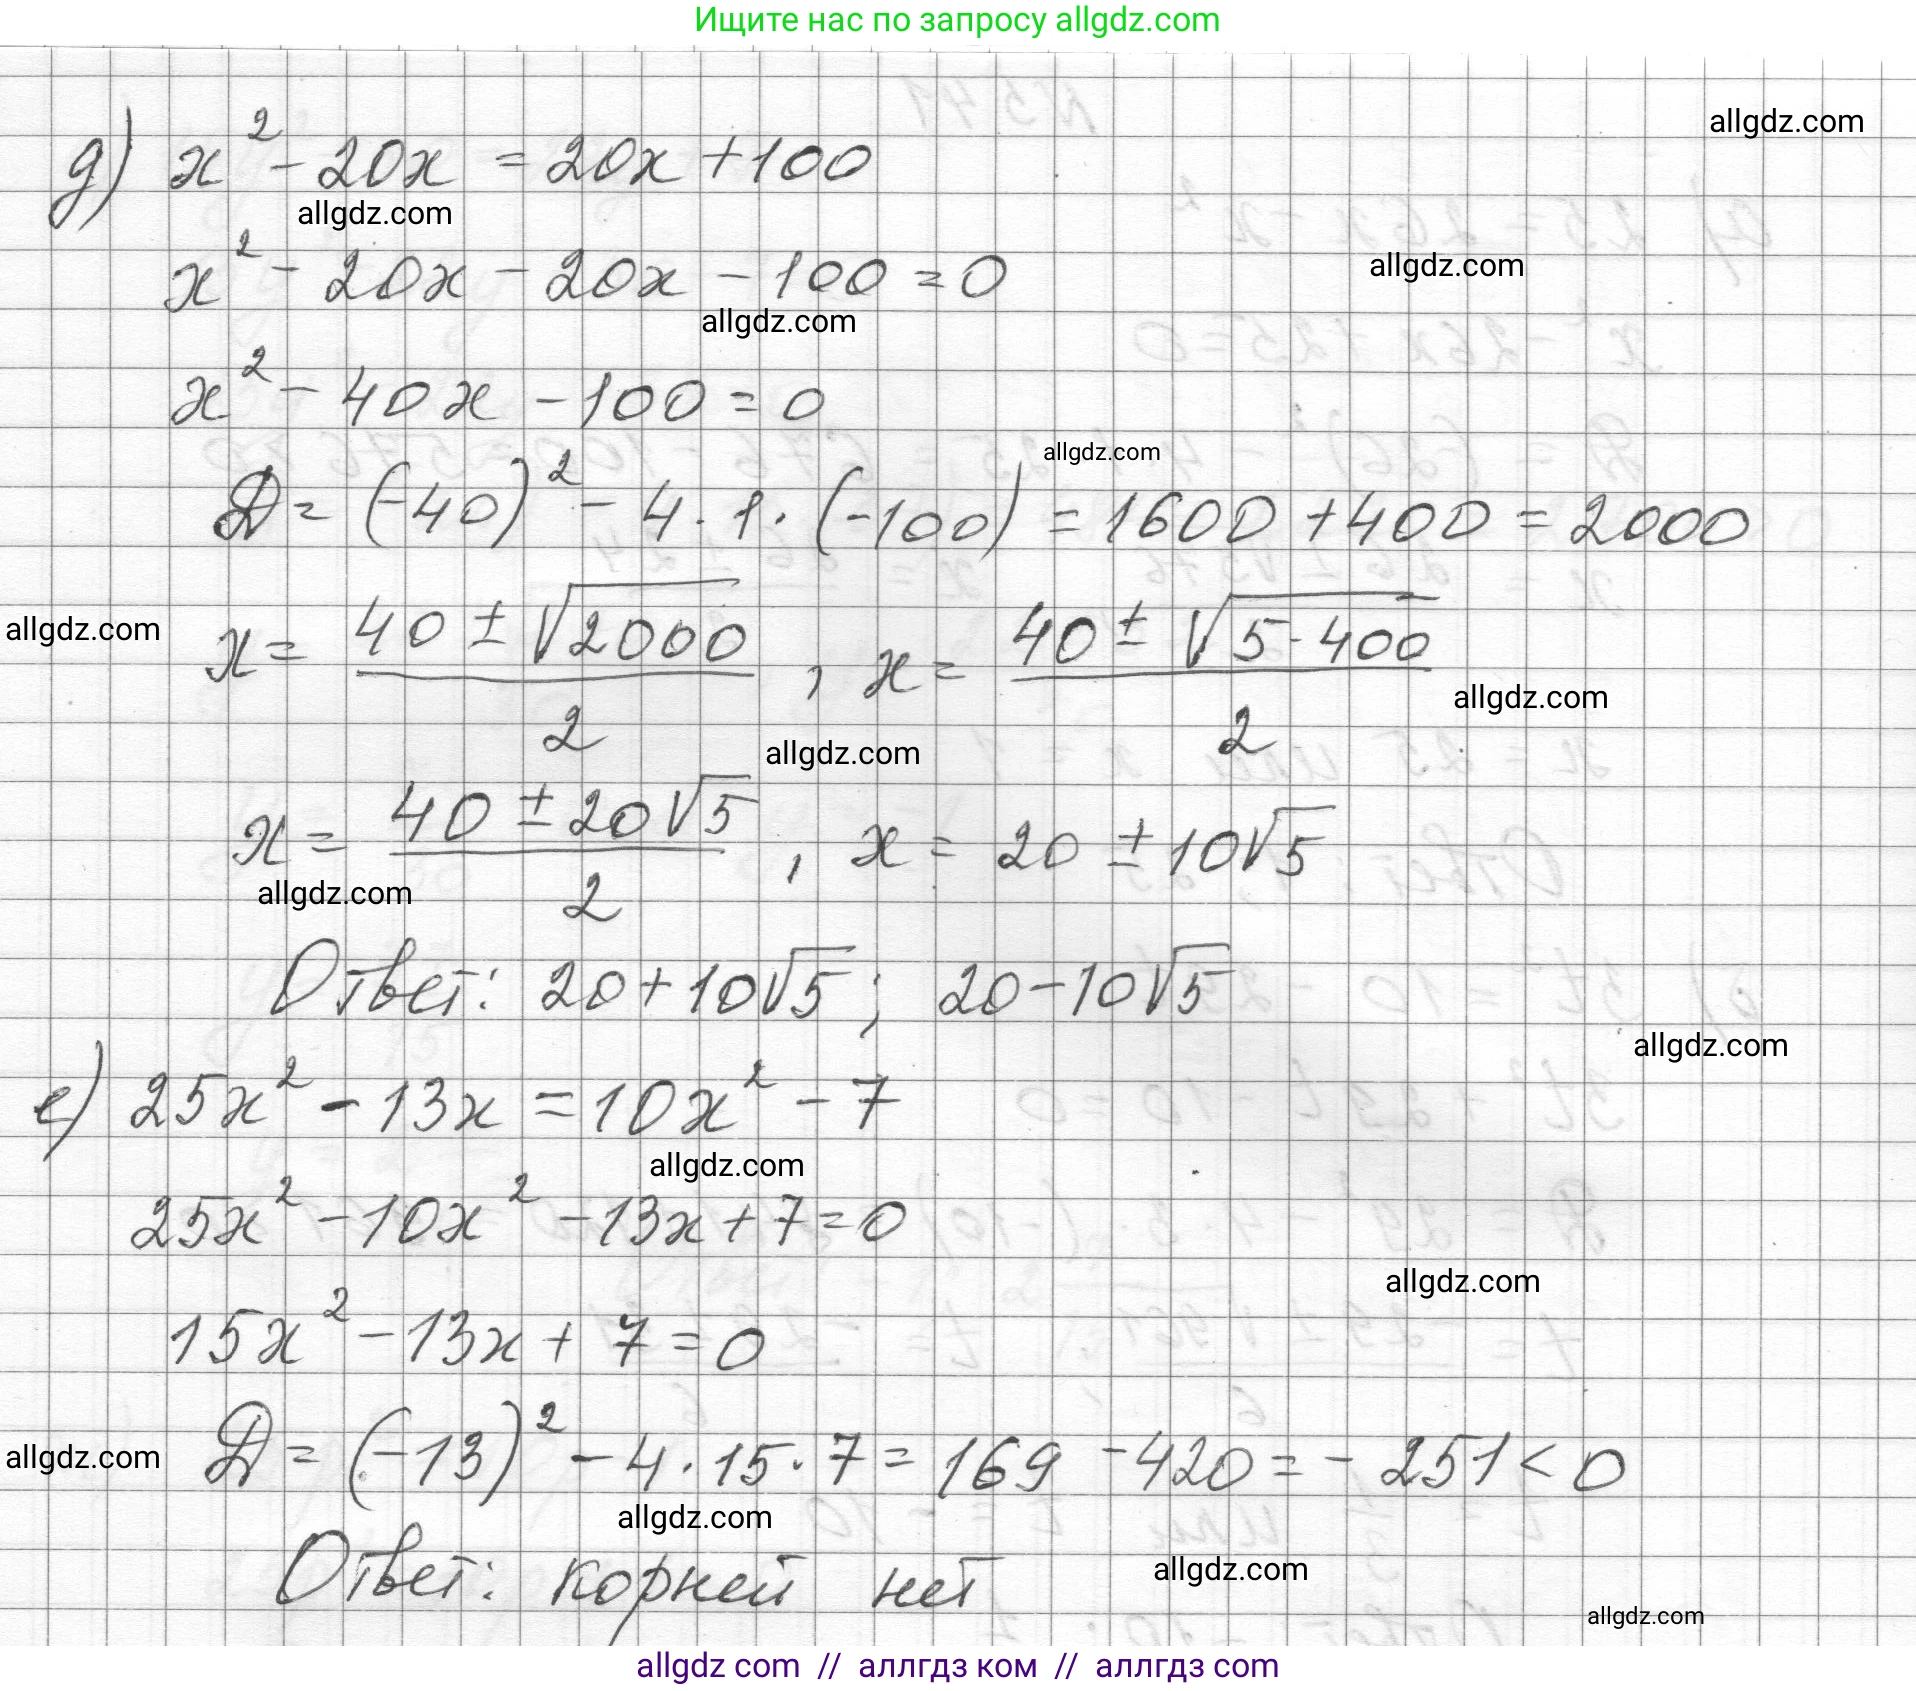 Ищите нас по запросу allgdz.com
allgdz.com
д) x² - 20x = 20x + 100
allgdz.com
x² - 20x - 20x - 100 = 0
allgdz.com
allgdz.com
x² - 40x - 100 = 0
allgdz.com
D = (-40)² - 4 · 1 · (-100) = 1600 + 400 = 2000
allgdz.com
x = (40 ± √2000)/2 , x = (40 ± √5·400)/2
allgdz.com
allgdz.com
x = (40 ± 20√5)/2 , x = 20 ± 10√5
allgdz.com
Ответ: 20 + 10√5 ; 20 - 10√5
allgdz.com
е) 25x² - 13x = 10x² - 7
allgdz.com
25x² - 10x² - 13x + 7 = 0
allgdz.com
15x² - 13x + 7 = 0
allgdz.com
D = (-13)² - 4 · 15 · 7 = 169 - 420 = - 251 < 0
allgdz.com
Ответ: корней нет
allgdz.com
allgdz.com
allgdz com // аллгдз ком // аллгдз com